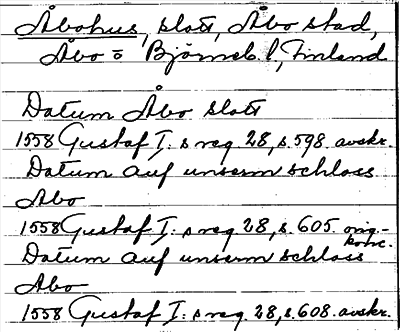 Åbohus, slott, Åbo stad,
Åbo o Björneb. l, Finland
Datum Åbo slott
1558 Gustaf I: s reg. 28, s. 598. avskr.
Datum auf unserm schloss
Abo
1558 Gustaf I: s reg. 28, s. 605. orig.-
konc.
Datum auf unserm schloss
Abo
1558 Gustaf I: s reg. 28, s. 608. avskr.